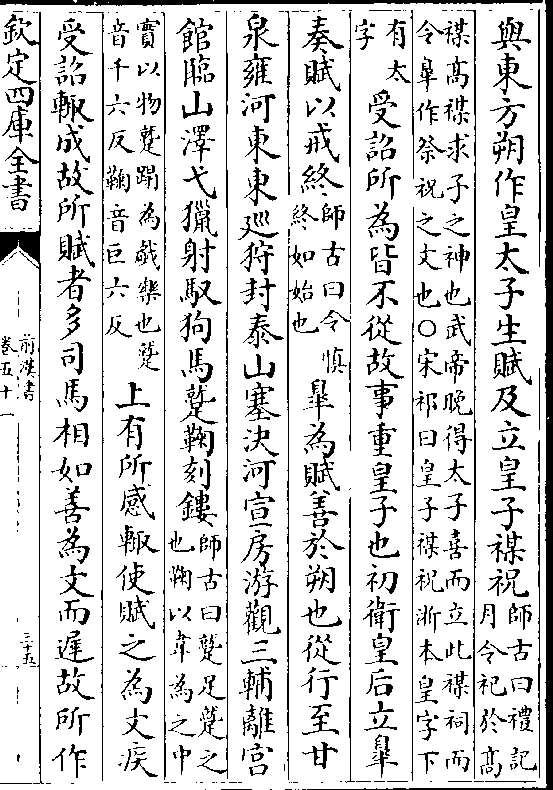 與東方朔作皇太子生賦及立皇子禖祝師古曰禮記
月令祀於高
禖高禖求子之神也武帝晚得太子喜而立此禖祠而
令臯作祭祝之文也○宋祁曰皇子禖祝淅本皇字下
有太
字
受詔所為皆不從故事重皇子也初衛皇后立臯
奏賦以戒終師古曰令慎
終如始也
臯為賦善於朔也從行至甘
泉雍河東東廵狩封泰山塞決河宣房游觀三輔離宮
館臨山澤弋獵射馭狗馬蹵鞠刻鏤師古曰蹵足蹵之
也鞠以韋為之中
實以物蹵蹋為戲樂也蹵
音千六反鞠音巨六反
上有所感輒使賦之為文疾
受詔輒成故所賦者多司馬相如善為文而遲故所作
欽定四庫全書
前漢書
卷五十一
三十五